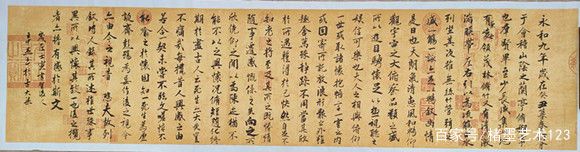 永和九年歲在癸丑暮春之初會
于會稽山陰之蘭亭修禊事
也羣賢畢至少長咸集此地
有崇山峻領茂林脩竹又有清流激
湍映帶左右引以為流觴曲水
列坐其次雖無絲竹管弦之
盛一觴一詠亦足以暢敘幽情
是日也天朗氣清惠風和暢仰
觀宇宙之大俯察品類之盛
所以遊目騁懷足以極視聽之
娛信可樂也夫人之相與俯仰
一世或取諸懷抱悟言一室之內
或因寄所託放浪形骸之外雖
趣舍萬殊靜躁不同當其欣
於所遇暫得於己快然自足不
知老之將至及其所之既惓情
隨事遷感慨係之矣向之所
欣俛仰之間以為陳迹猶不
能不以之興懷況脩短隨化終
期於盡古人云死生亦大矣豈
不痛哉每攬昔人興感之由
若合一契未嘗不臨文嗟悼不
能喻之於懷固知一死生為虛
誕齊彭殤為妄作後之視今
亦由今之視昔悲夫故列
敘時人錄其所述雖世殊事
異所以興懷其致一也後之攬
者亦將有感於斯文
百家号/楮墨艺术123